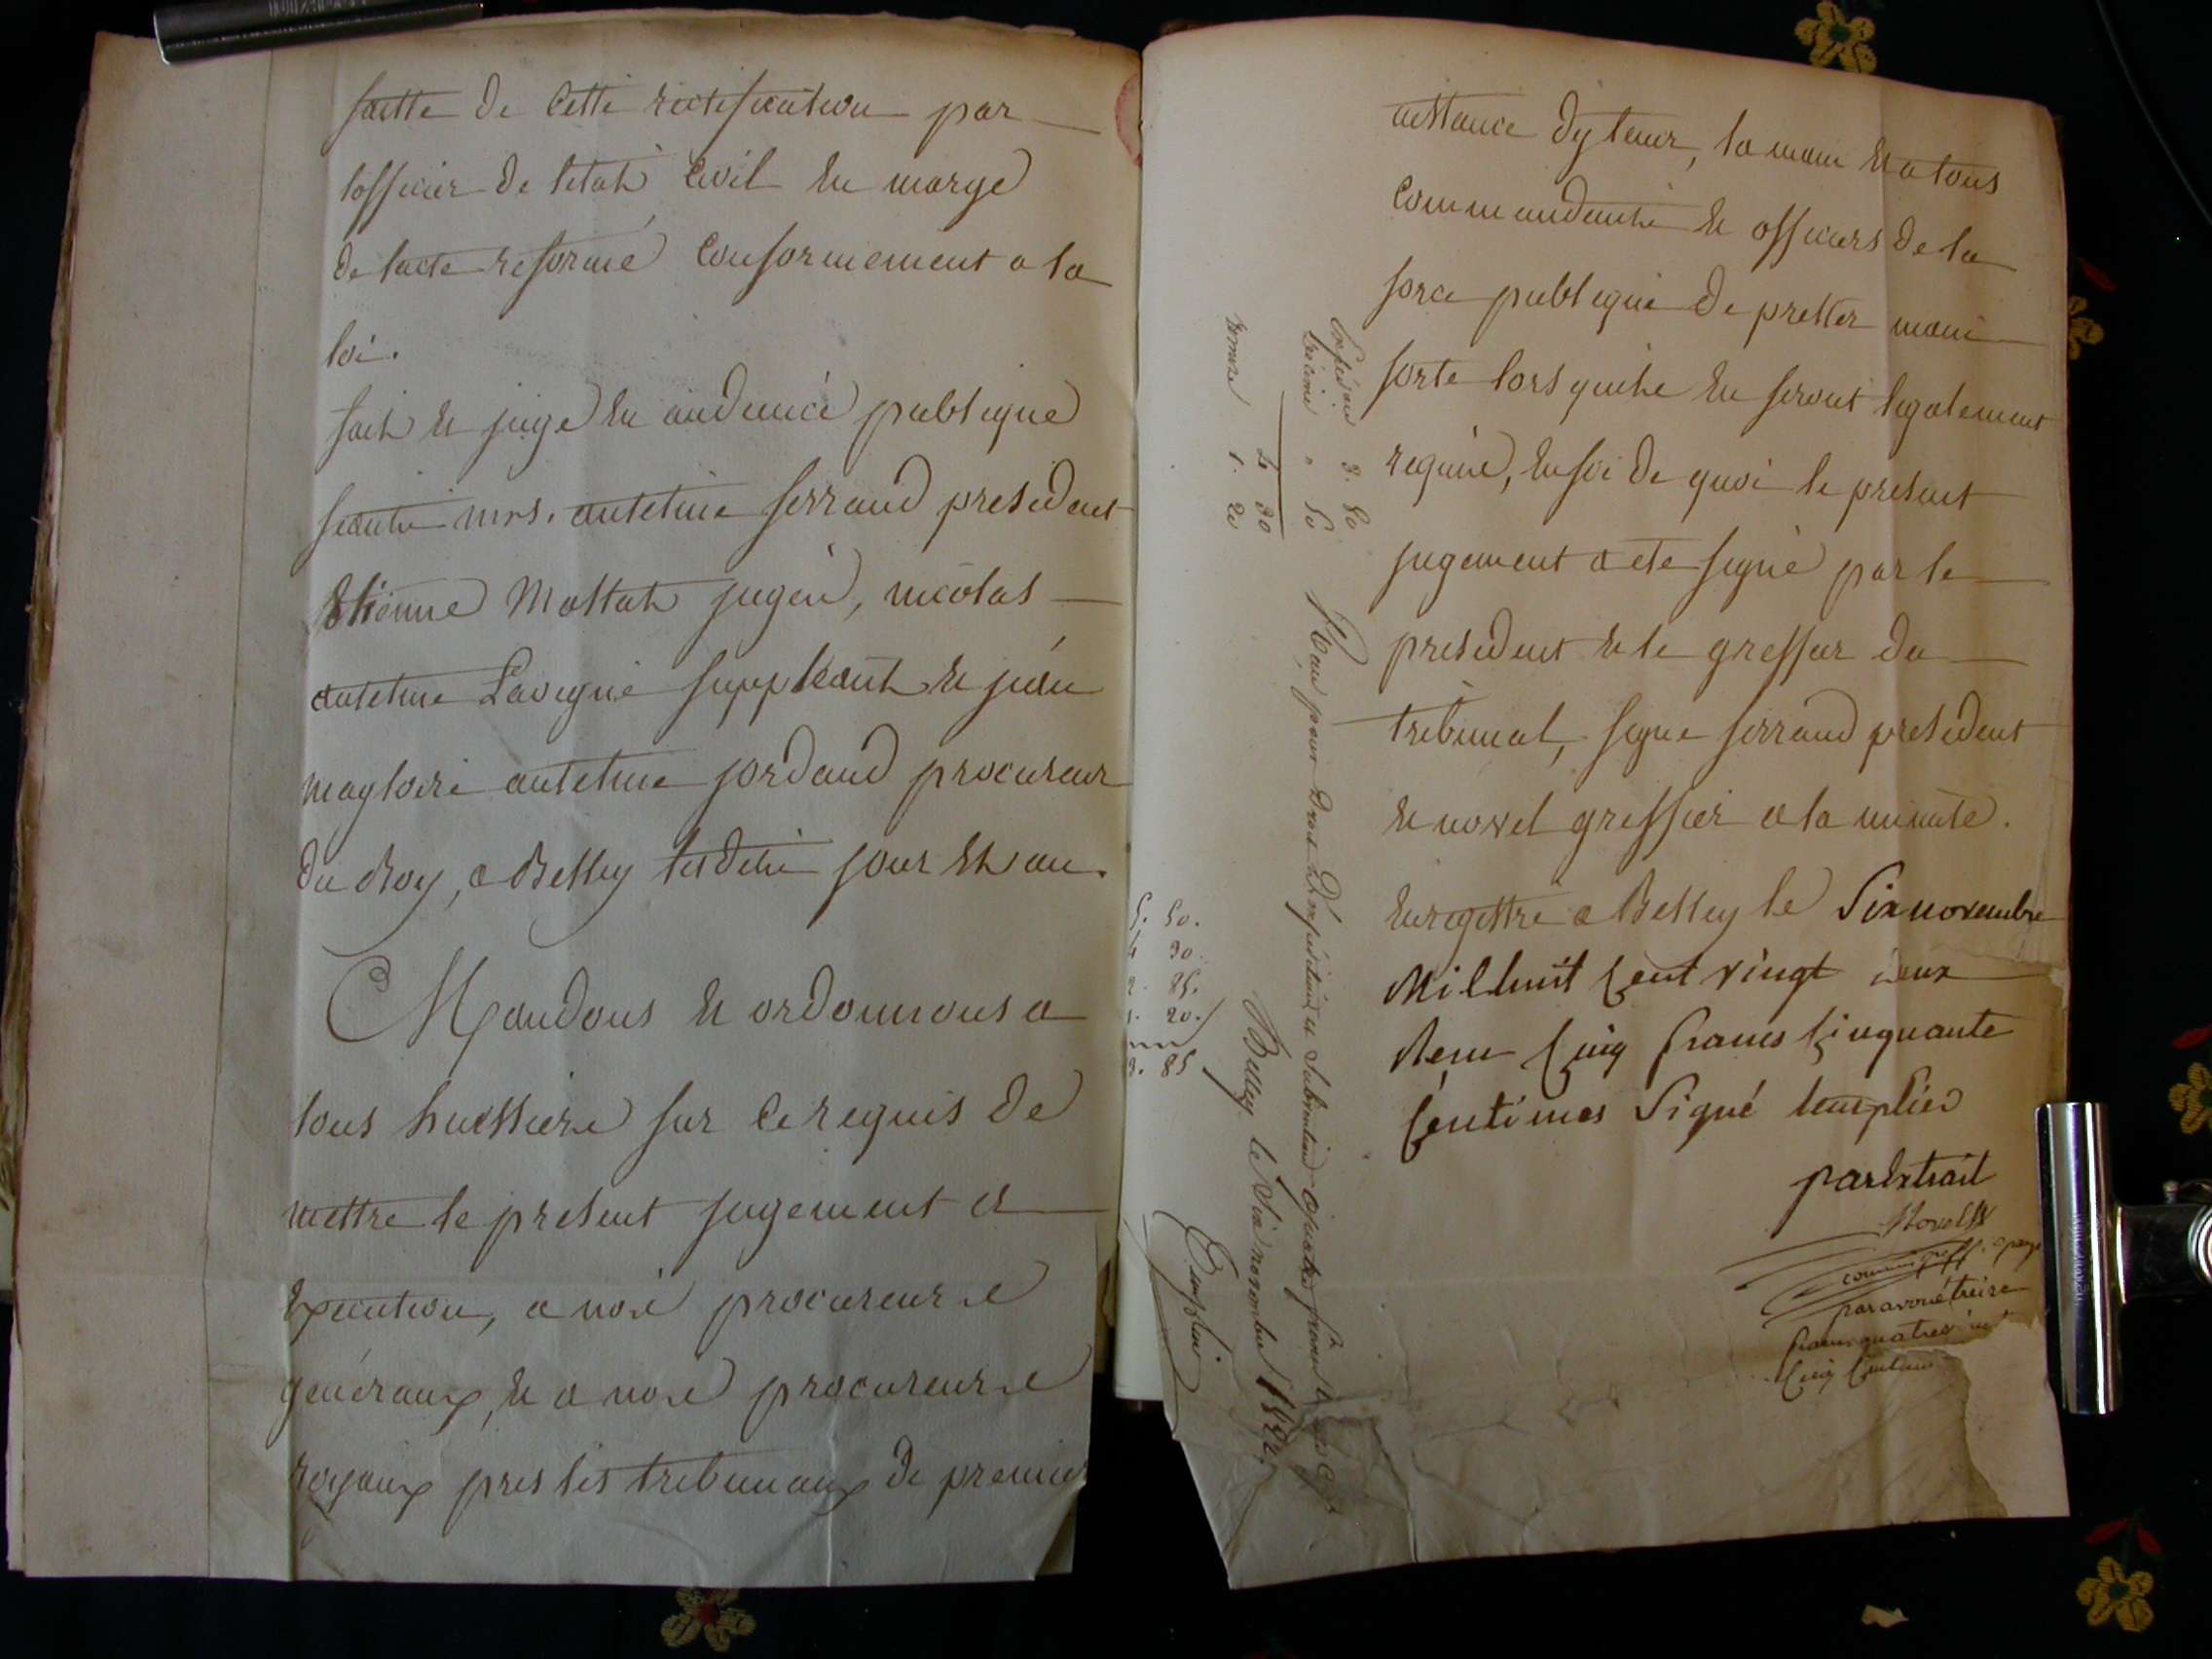 faitte de cette rectification par
lofficier de letat civil en marge
de lacte reformé conformement a la
loi.
fait et jugé en audience publique
seants mrs. antelme ferrand president
Etienne Mottat juges, nicolas
antelme Lavigne suppleant et jean
magloire antelme jordand procureur
du Roy, a Belley lesdits jour et an.
Mandons et ordonnons a
tous huissiers sur ce requis de
mettre le present jugement a
Execution, a nos procureurs
généraux, et a nos procureurs
royaux pres les tribunaux de premier
5. 50.
4 30.
2. 85.
1. 20.
3. 85
aistance dy tenir, la main et a tous
commandants et officiers de la
force publique de pretter main
forte lorsquils en seront legalement
requis, en foi de quoi le present
jugement a ete signé par le
president et le greffier du
tribunal, signe ferrand president
et novel greffier a la minute.
Enregistré a Belley le Six novembre
Mil huit Cent vingt deux
Recu Cinq francs Cinquante
Centimes Signé templier
par Extrait
Novel
commis greff.
par avoué treize
francs quatres
Cinq Centimes
Expedition 3. 80
Decime " 50
4 30
Remise 1. 20
Reçu pour droit D'expedition et Subvention quatres francs
Belley le Six novembre 1822.
Templier